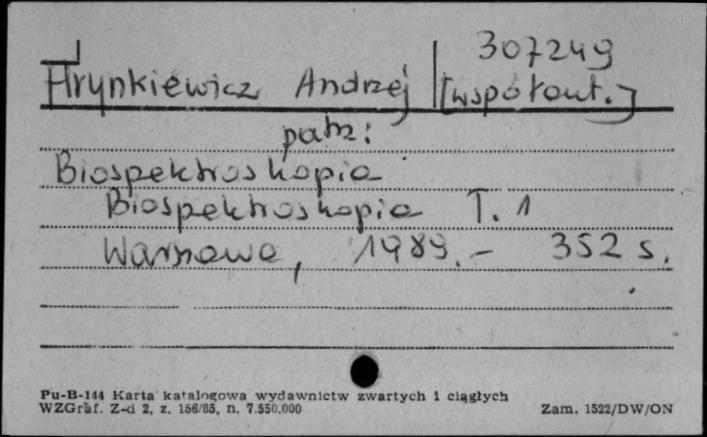 307249
Hrynkiewicz Andrzej [współaut.]
patrz:
Biospektroskopia
Biospektroskopia T. 1
Warszawa, 1989.- 352 s.
Pu-B-144 Karta katalogowa wydawnictw zwartych i ciągłych
WZGraf. Z-d 2, z. 156/85, n. 7.550.000 Zam. 1522/DW/ON